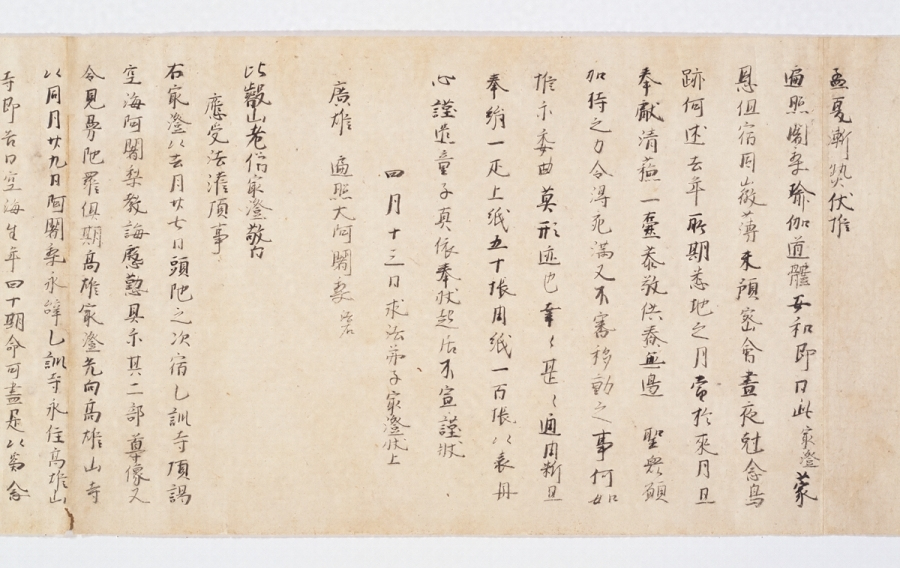 孟夏漸熱伏惟
遍照闍梨瑜伽道體安和即日此最澄蒙
恩但宿因微薄未預密會晝夜剋念烏
跡何述去年所期悉地之月當於來月且
奉獻清蘓一壺恭敬供養無邊 聖衆願
加持之力令得死滿又不審移動之事何如
惟示委曲莫形迹也幸〻甚〻通用新且
奉絹一疋上紙五十張周紙一百張以表丹
心謹遣童子真依奉狀起居不宣謹狀
四月十三日求法弟子最澄狀上
廣雄 遍照大阿闍梨
比叡山老僧最澄敬白
應受法灌頂事
右最澄以去月廿七日頭陁之次宿乙訓寺頂謁
空海阿闍梨教誨慇懃具示其二部尊像又
令見曼陁羅俱期高雄最澄先向高雄山寺
以同月廿九日阿闍梨永辭乙訓寺永住高雄山
寺即告曰空海生年四十期命可盡是以為念